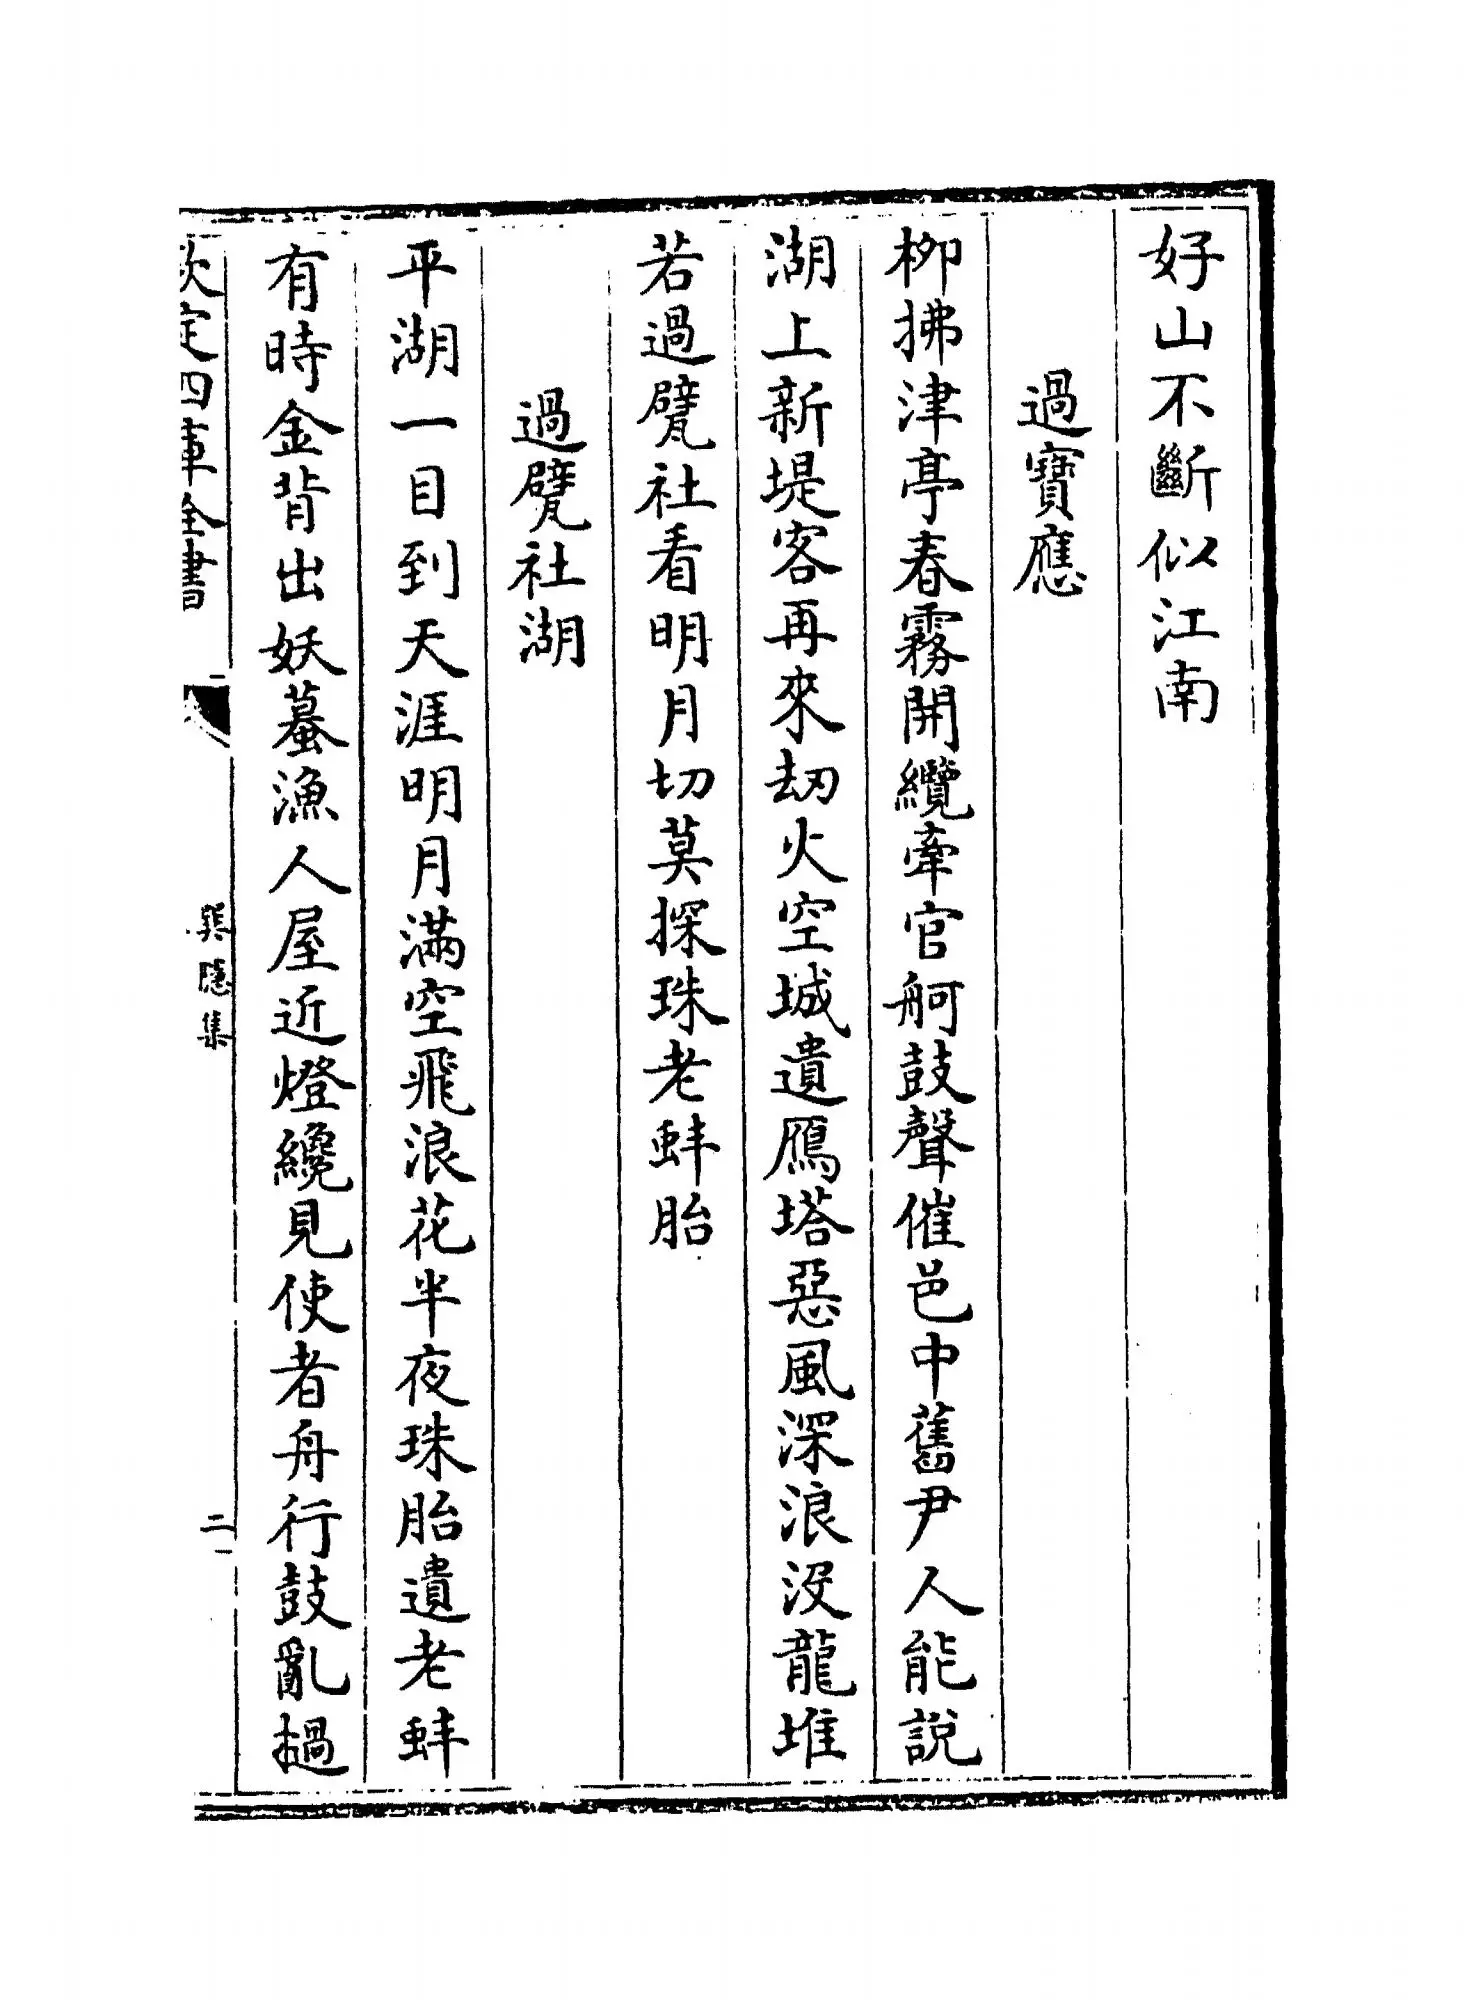 好山不斷似江南
過寶應
栁拂津亭春霧開纜牽官舸鼓聲催邑中舊尹人能說
湖上新堤客再來刼火空城遺鴈塔惡風深浪沒龍堆
若過甓社看明月切莫探珠老蚌胎
過甓社湖
平湖一目到天涯明月滿空飛浪花半夜珠胎遺老蚌
有時金背出妖蟇漁人屋近燈纔見使者舟行鼓亂撾
欽定四庫全書
巽隱集
二